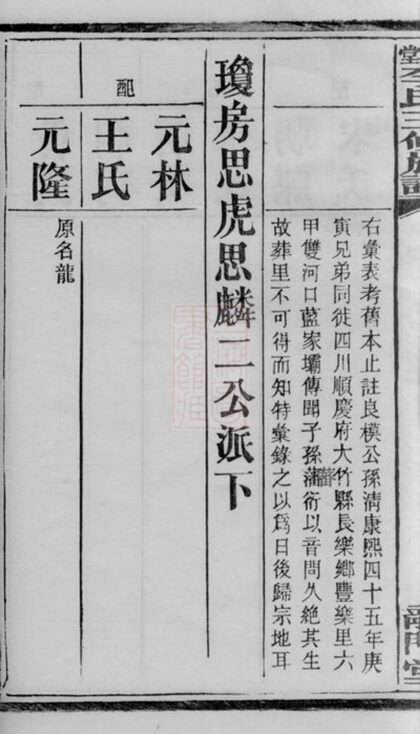 堂李氏三修族譜
右彙表考舊本止註良模公孫清康熙四十五年庚
寅兄弟同徙四川順慶府大竹縣長樂鄉豐樂里六
甲雙河口藍家壩傳聞子孫蕃衍以音問久絕其生
故葬里不可得而知特彙錄之以爲日後歸宗地耳
瓊房思虎思麟二公派下
元林
配
王氏
元隆
原名龍